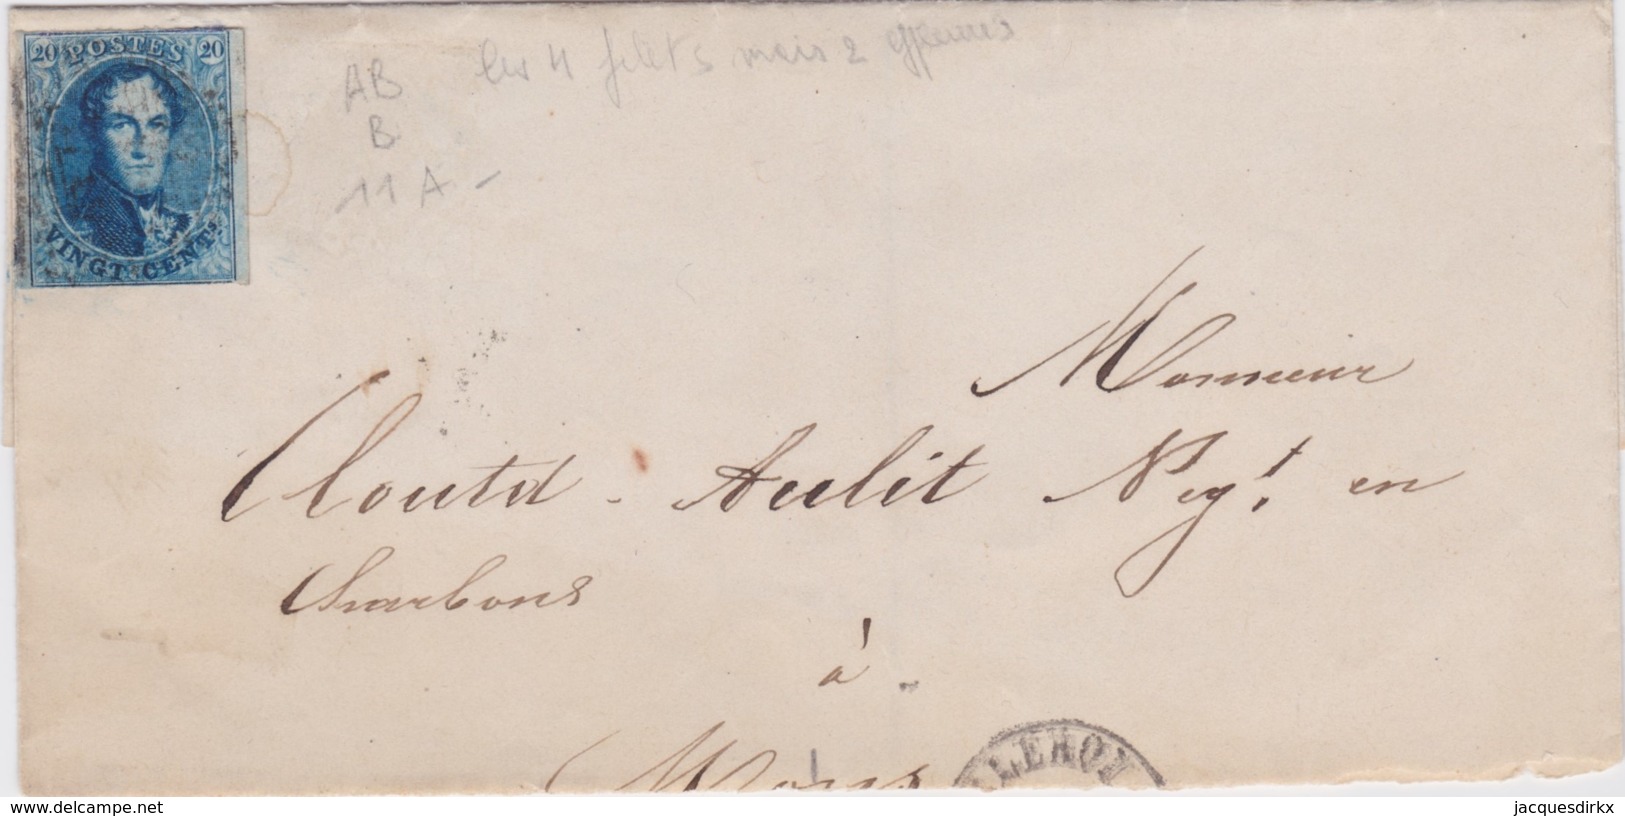 20 POSTES 20
VINGT CENTS.
AB
B
11 A -
les 4 filets mais 2 effleurés
Monsieur
Cloutd - Aulit Negt. en
Charbons
à
Mons
LEROI
delcampe.net
jacquesdirkx